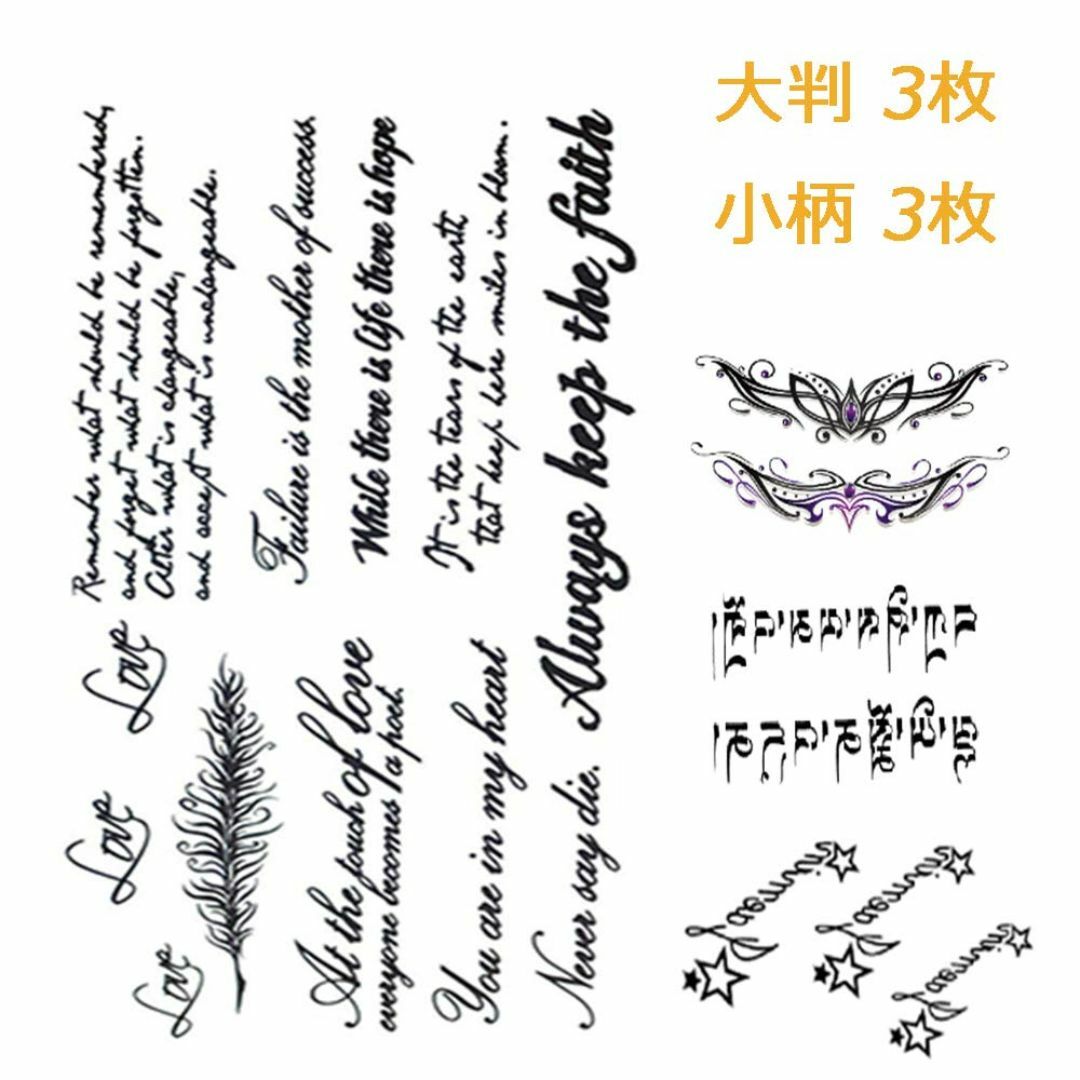 大判 3枚
小柄 3枚
Remember what should be remembered,
and forget what should be forgotten.
Alter what is changeable,
and accept what is unchangeable.
Failure is the mother of success.
While there is life there is hope
It is the tears of the earth
that keep here smiles in bloom.
Always keep the faith
Love
Love
Love
At the touch of love
everyone becomes a poet.
You are in my heart
Never say die.